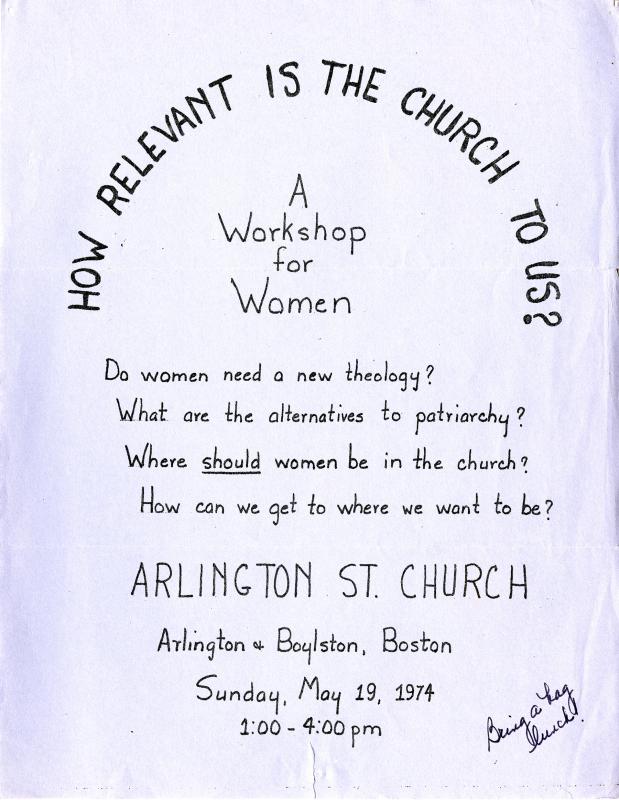 HOW RELEVANT IS THE CHURCH TO US?
A
Workshop
for
Women
Do women need a new theology?
What are the alternatives to patriarchy?
Where should women be in the church?
How can we get to where we want to be?
ARLINGTON ST. CHURCH
Arlington & Boylston, Boston
Sunday, May 19, 1974
1:00 - 4:00 pm
Bring a bag
lunch!